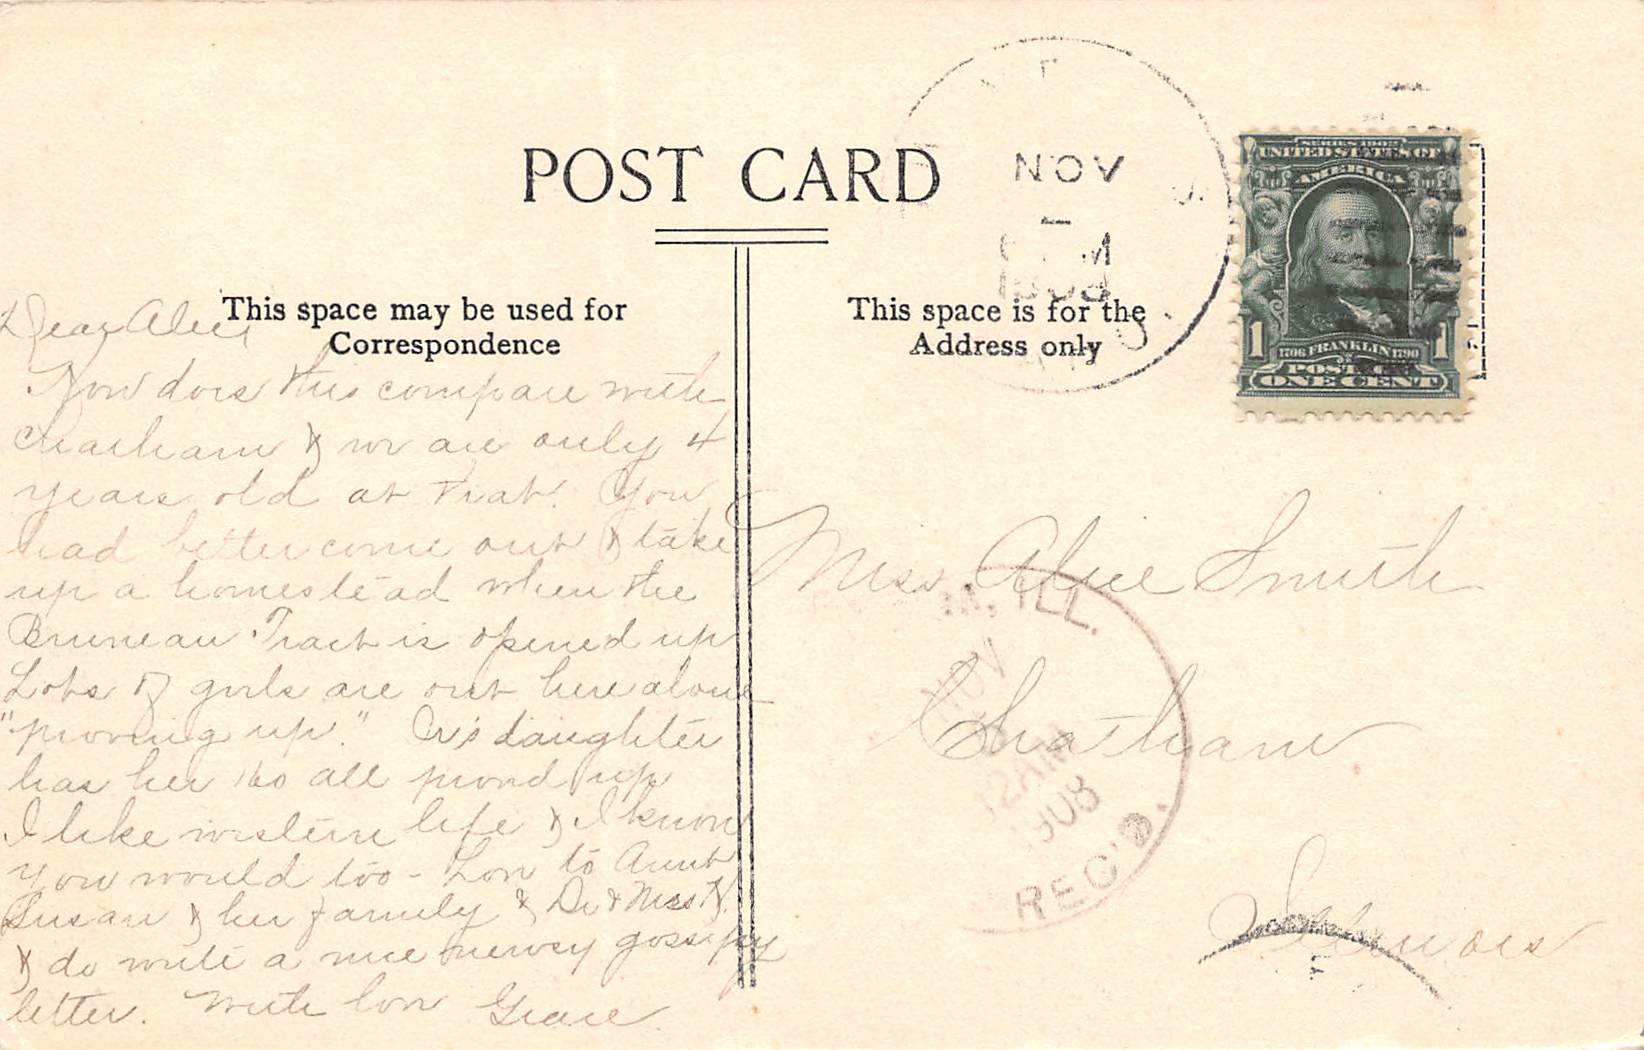 POST CARD
This space may be used for
Correspondence
This space is for the
Address only
NOV
M
1908
SERIES 1902
UNITED STATES OF
AMERICA
1 1
1706 FRANKLIN 1790
POSTAGE
ONE CENT
Dear Alice
How does this compare with
Chatham & we are only 4
years old at that. You
had better come out & take
up a homestead when the
Bruneau Tract is opened up
Lots of girls are out here alone
"proving up." daughter
has her 160 all proved up
I like western life & I know
you would too - Love to Aunt
Susan & her family & Dr & Mrs H.
& do write a nice newsy gossipy
letter. With love Grace.
Miss Alice Smith
Chatham
Illinois
M, ILL.
NOV
12 AM
1908
REC'D.